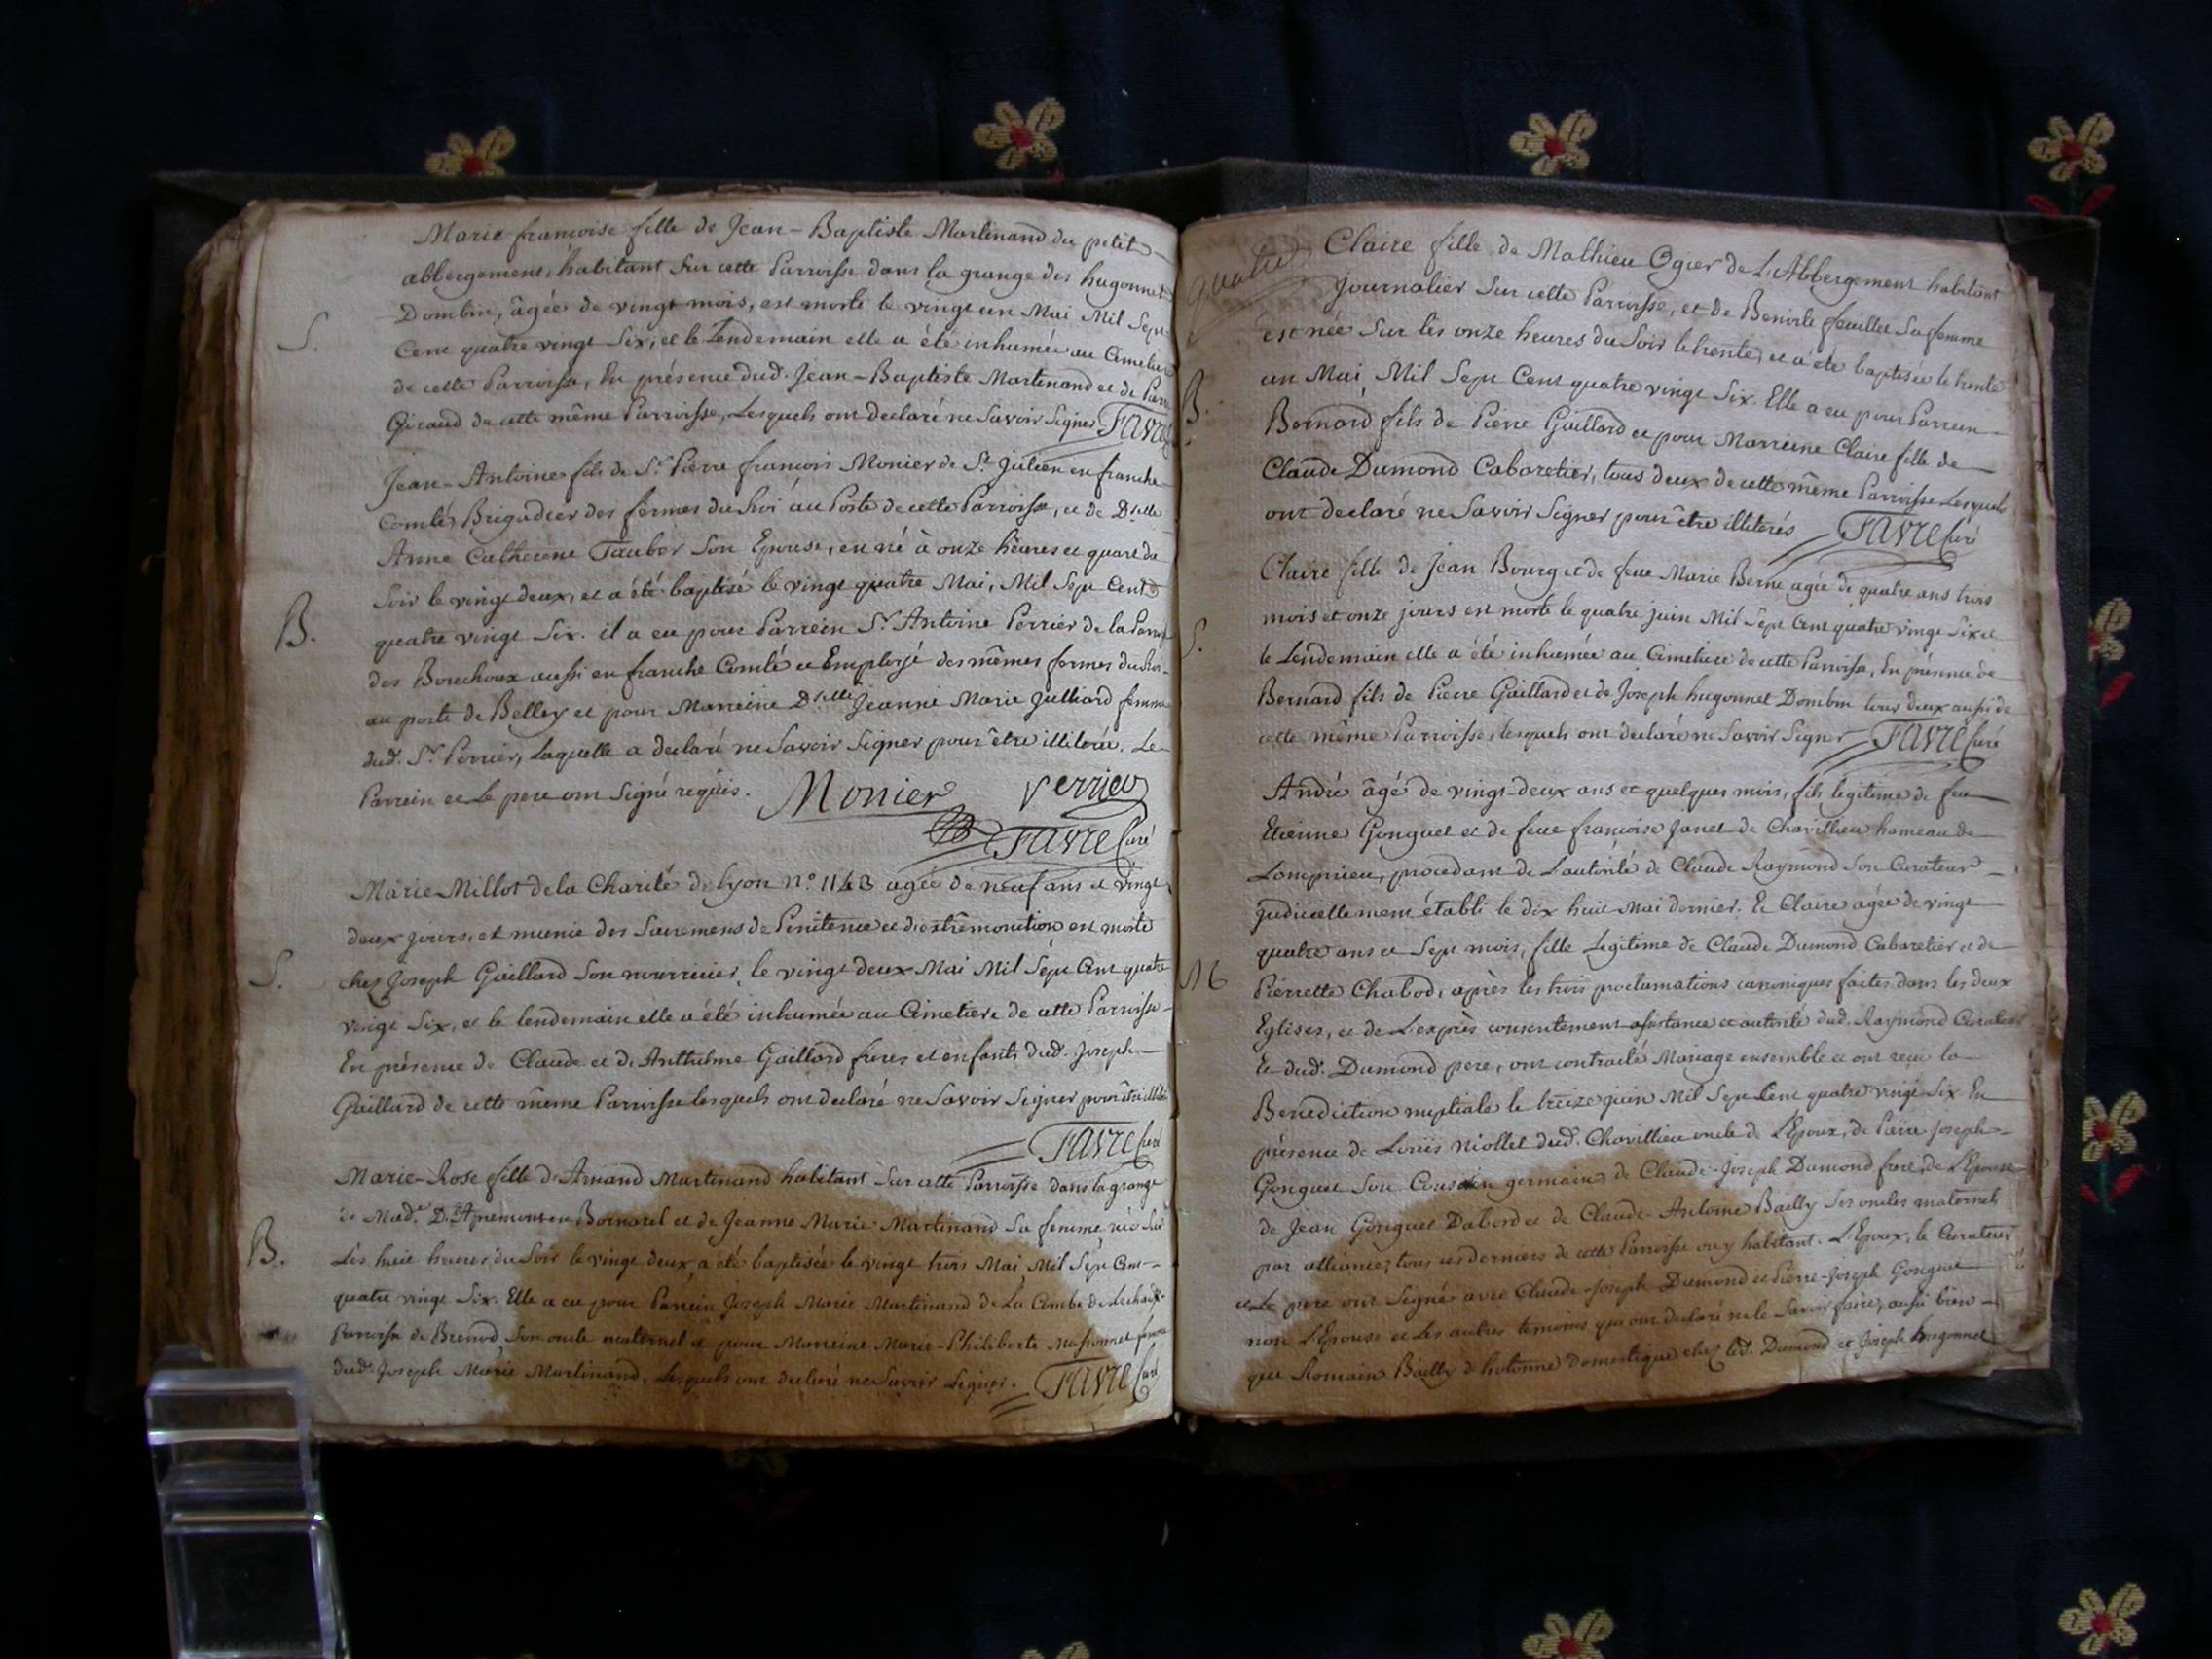 Marie francoise fille de Jean-Baptiste Martinand du petit
abbergement, habitant Sur cette Parroisse dans la grange des hugonnet
Dombin, âgée de vingt mois, est morte le vingt un Mai Mil Sept
S.
Cent quatre vingt Six, et le Lendemain elle a été inhumée au Cimetiere
de cette Parroisse, En présence dud. Jean-Baptiste Martinand et de
Giraud de cette même Parroisse, Lesquels ont declaré ne Savoir Signer FAVRE
Jean-Antoine fils de Sr. Pierre francois Monier de St. Julien en franche
Comté, Brigadier des fermes du Roi au Poste de cette Parroisse, et de Dlle
Anne Catherine Tauber Son Epouse, est né à onze hêures et quart du
Soir le vingt deux, et a été baptisé le vingt quatre Mai, Mil Sept Cent
B.
quatre vingt Six. il a eu pour Parrein Sr. Antoine Perrier de la
des Bouchoux aussi en franche Comté et Emploijé des mêmes fermes du Roi
au poste de Belley et pour Marreine Dlle Jeanne Marie Julliard femme
dud. Sr. Perrier, Laquelle a declaré ne Savoir Signer pour être illiterée. Le
Parrein et Le pere ont Signé requis. Monier Perrier
FAVRE Curé
Marie Millot de la Charité de Lyon n.° 1143 agée de neuf ans et vingt
deux jours, et munie des Sacremens de Penitence et d'extrêmonction est morte
S.
chez Joseph Gaillard Son nourricier, le vingt deux Mai Mil Sept Cent quatre
vingt Six, et le lendemain elle a été inhumée au Cimetiere de cette Parroisse
En présence de Claude et d'Anthelme Gaillard freres et enfants dud. Joseph
Gaillard de cette même Parroisse lesquels ont declaré ne Savoir Signer pour être
FAVRE Curé
Marie-Rose fille d'Armand Martinand habitant Sur cette Parroisse dans la grange
de Mad.e et de Jeanne Marie Martinand Sa femme, née Sur
B.
Les huit heures du Soir le vingt deux a été baptisée le vingt trois Mai Mil Sept Cent
quatre vingt Six. Elle a eu pour Parrein Joseph Marie Martinand de La Combe de Lechaux
Parroisse de Brenod Son oncle maternel et pour Marreine Marie-Philiberte femme
dud. Joseph Marie Martinand, Lesquels ont declaré ne Savoir Signer. FAVRE Curé
Claire fille de Mathieu Ogier de L'Abbergement habitant
journalier Sur cette Parroisse, et de Benoite feuillet Sa femme
est née Sur les onze heures du Soir le trente, et a été baptisée le trente
un Mai, Mil Sept Cent quatre vingt Six. Elle a eu pour Parrein
B.
Bernard fils de Pierre Gaillard et pour Marreine Claire fille de
Claude Dumond Cabaretier, tous deux de cette même Parroisse Lesquels
ont declaré ne Savoir Signer pour être illiterés FAVRE Curé
Claire fille de Jean Bourg et de feue Marie Berne agée de quatre ans trois
mois et onze jours est morte le quatre juin Mil Sept Cent quatre vingt Six et
S.
le Lendemain elle a été inhumée au Cimetiere de cette Parroisse, En présence de
Bernard fils de Pierre Gaillard et de Joseph hugonnet Dombin tous deux aussi de
cette même Parroisse, lesquels ont declaré ne Savoir Signer FAVRE Curé
André âgé de vingt-deux ans et quelques mois, fils legitime de feu
Etienne Gonguet et de feue francoise Janet de Chavillieu hameau de
Lompnieu, procedant de L'autorité de Claude Raymond Son Curateur
judiciellement établi le dix huit Mai dernier. Et Claire agée de vingt
quatre ans et Sept mois, fille Legitime de Claude Dumond Cabaretier et de
M
Pierrette Chabod, après les trois proclamations canoniques faites dans les deux
Eglises, et de L'exprès consentement assistance et autorité dud. Raymond Curateur
Et dud. Dumond pere, ont contracté Mariage ensemble et ont reçu la
Benediction nuptiale le treize juin Mil Sept Cent quatre vingt Six. En
présence de Loüis Niollet dud. Chavillieu oncle de L'Epoux, de Pierre Joseph
Gonguet Son Cousin germain, de Claude-Joseph Dumond frere de L'Epouse
de Jean Gonguet Dabord et de Claude-Antoine Bailly Ses oncles maternels
par alliance, tous ces derniers de cette Parroisse ou y habitant. L'Epoux, le Curateur
et Le pere ont Signé avec Claude-Joseph Dumond et Pierre-Joseph Gonguet
non L'Epouse et Les autres temoins qui ont declaré ne le Savoir faire, aussi bien
que Romain Bailly d'hotonne domestique chez led. Dumond et Joseph hugonnet